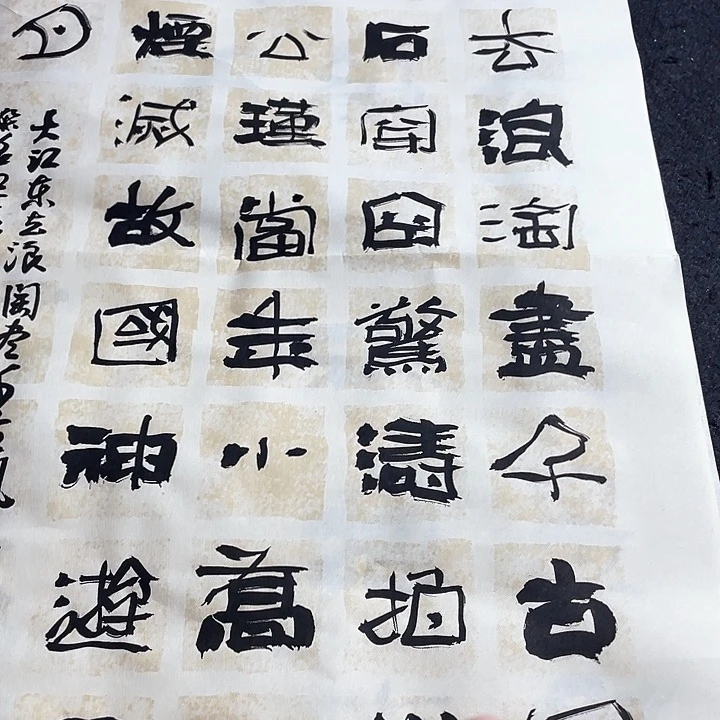 去浪淘盡千古
石穿空驚濤拍
公瑾當年小喬
煙滅故國神遊
月
大江东去浪淘尽千古风